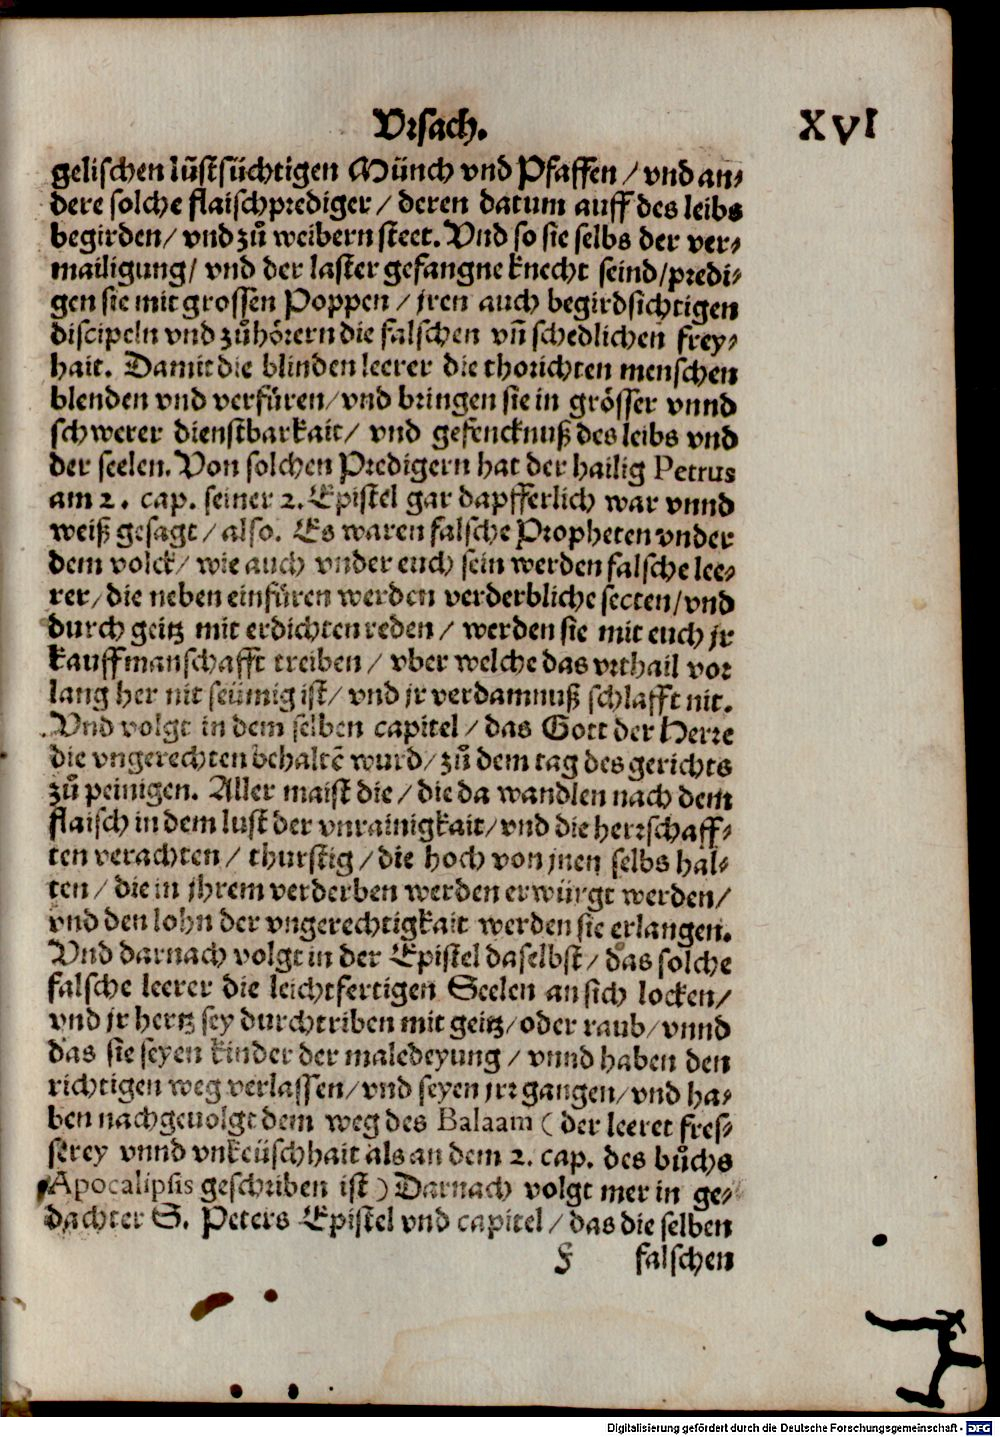 Vrsach. XVI
gelischen lüstsüchtigen Münch vnd Pfaffen / vnd an⸗
dere solche flaischprediger / deren datum auff des leibs
begirden / vnd zů weibern steet. Vnd so sie selbs der ver⸗
mailigung / vnd der laster gefangne knecht seind / predi⸗
gen sie mit grossen Poppen / jren auch begirdsichtigen
discipeln vnd zůhörern die falschen vñ schedlichen frey⸗
hait. Damit die blinden leerer die thorichten menschen
blenden vnd verfüren / vnd bringen sie in grösser vnnd
schwerer dienstbarkait / vnd gefencknuß des leibs vnd
der seelen. Von solchen Predigern hat der hailig Petrus
am 2. cap. seiner 2. Epistel gar dapfferlich war vnnd
weiß gesagt / also. Es waren falsche Propheten vnder
dem volck / wie auch vnder euch sein werden falsche lee⸗
rer / die neben einfüren werden verderbliche secten / vnd
durch geitz mit erdichten reden / werden sie mit euch jr
kauffmanschafft treiben / vber welche das vrthail vor
lang her nit seümig ist / vnd jr verdamnuß schlafft nit.
Vnd volgt in dem selben capitel / das Gott der Herre
die vngerechten behaltē wurd / zů dem tag des gerichts
zů peinigen. Aller maist die / die da wandlen nach dem
flaisch in dem lust der vnrainigkait / vnd die herrschaff⸗
ten verachten / thurstig / die hoch von jnen selbs hal⸗
ten / die in jhrem verderben werden erwürgt werden /
vnd den lohn der vngerechtigkait werden sie erlangen.
Vnd darnach volgt in der Epistel daselbst / das solche
falsche leerer die leichtfertigen Seelen an sich locken /
vnd jr hertz sey durchtriben mit geitz / oder raub / vnnd
das sie seyen kinder der maledeyung / vnnd haben den
richtigen weg verlassen / vnd seyen jrr gangen / vnd ha⸗
ben nachgeuolgt dem weg des Balaam ( der leeret fres⸗
serey vnnd vnkeüschhait als an dem 2. cap. des bůchs
Apocalipsis geschriben ist ) Darnach volgt mer in ge⸗
dachter S. Peters Epistel vnd capitel / das die selben
F falschen
Digitalisierung gefördert durch die Deutsche Forschungsgemeinschaft - DFG